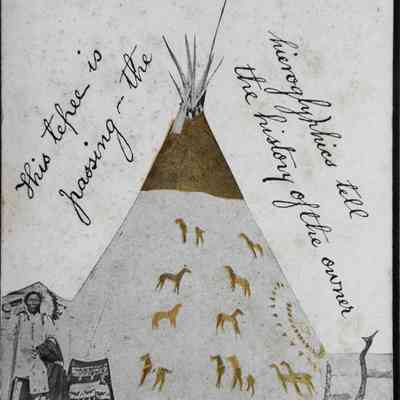 This tepee is
passing - the
hieroglyphics tell
the history of the owner